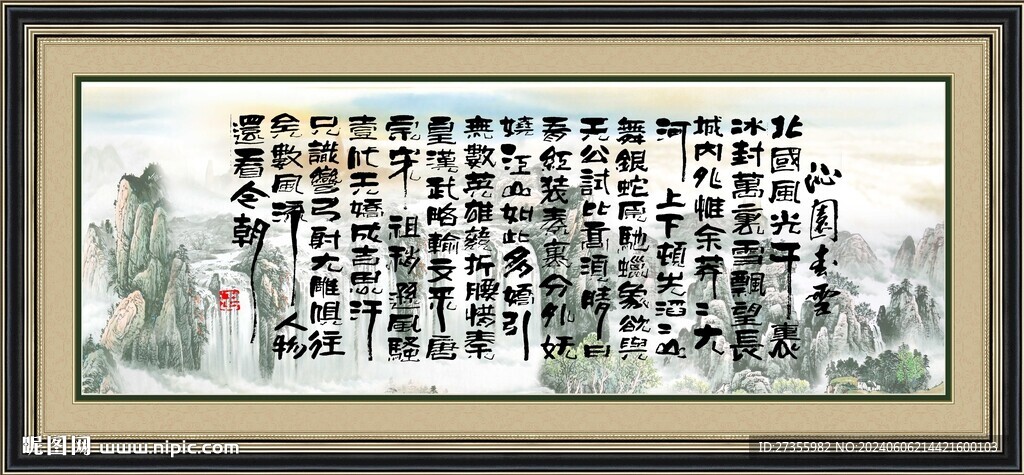 沁園春雪
北國風光千裏
冰封萬裏雪飄望長
城内外惟余莽〻大
河上下頓失滔〻山
舞銀蛇原馳蠟象欲與
天公試比高須晴日
看紅装素裹分外妖
嬈江山如此多嬌引
無數英雄競折腰惜秦
皇漢武略輸文采唐
宗宋祖稍遜風騷
壹代天嬌成吉思汗
只識彎弓射大雕俱往
矣數風流人物
還看今朝
昵图网 www.nipic.com
ID:27355982 NO:20240606214421600103